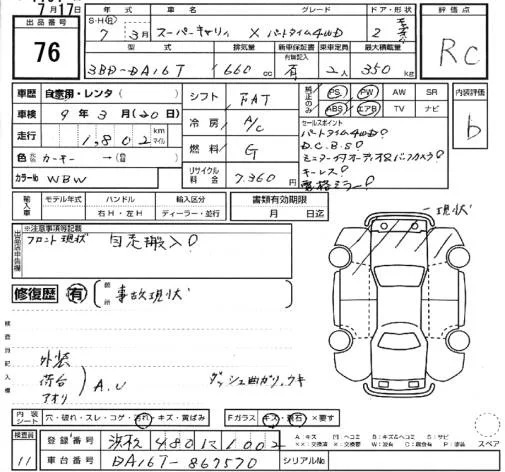 7月17日
出品番号 76
S・H(R) 7 3月
車名 スーパーキャリィ
グレード X パートタイム4WD
ドア・形状 2
評価点 RC
型式 3BD-DA16T
排気量 660 cc
新車保証書 有無記入 有
乗車定員 2人
最大積載量 350 kg
車歴 自家用・レンタ( )
車検 9年3月(20日)
走行 1,802 km マイル
色 カーキー → (色)
カラーNo WBW
シフト FAT
冷房 A/C
燃料 G
リサイクル料金 7,360円
純正のみ PS PW AW SR
ABS エアB TV ナビ
内装評価 b
セールスポイント
パートタイム4WD!
D.C.B.S!
ミラー付オーディオ&バックカメラ!
キーレス!
輸入車 モデル年式 ハンドル 右H・左H 輸入区分 ディーラー・並行
書類有効期限 月 日迄
※注意事項等記載
出品店申告欄
フロント現状 自走搬入!
現状
修復歴 有 箇所 事故現状
検査員記入欄
外装
荷台
アオリ
A.U
ダッシュ曲ガリ、ウキ
内装シート 穴・破れ・スレ・コゲ・汚れ・キズ・黄ばみ
Fガラス キズ・飛石・×要す
A:キズ
スペア
検査員 11
登録番号 浜松 480 1002
車台番号 DA16T-867570
シリアルNo